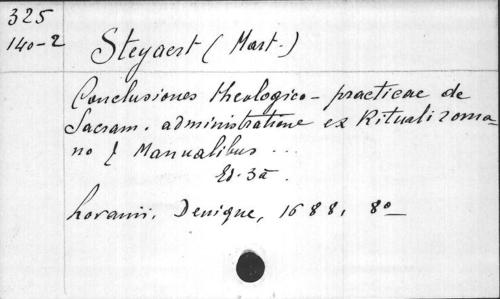 325
140-2
Steyaert (Mart.)
Conclusiones theologico-practicae de
Sacram. administratione ex Rituali roma
no & Manualibus ...
Ed. 3a.
Lovanii. Denique, 1688, 8o